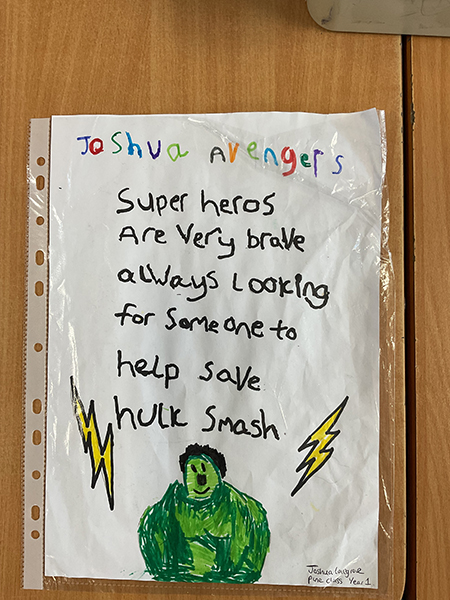 Joshua Avengers
Super heros
Are Very brave
always Looking
for Someone to
help save
hulk Smash
Joshua
Pine class Year 1